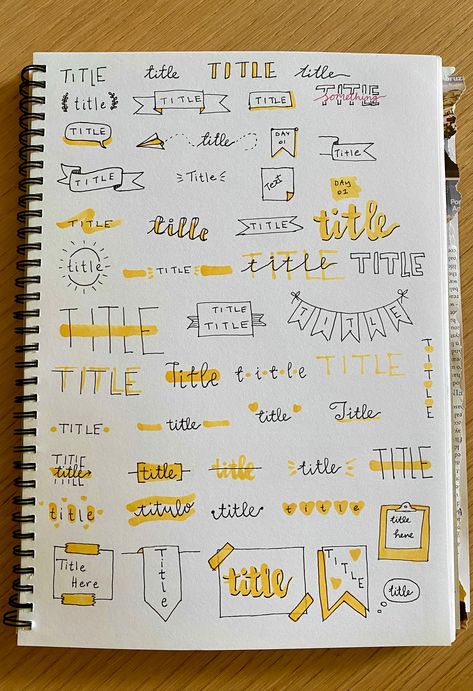 TITLE title TITLE title
title TITLE TITLE TITLE something
TITLE title DAY 01 Title
TITLE Title Text DAY 01
TITLE title TITLE title
title TITLE title TITLE TITLE
TITLE TITLE TITLE
TITLE TITLE
TITLE Title title TITLE TITLE
TITLE title title Title
TITLE title title title title TITLE
title titulo title title title here
Title Here Title title TITLE title